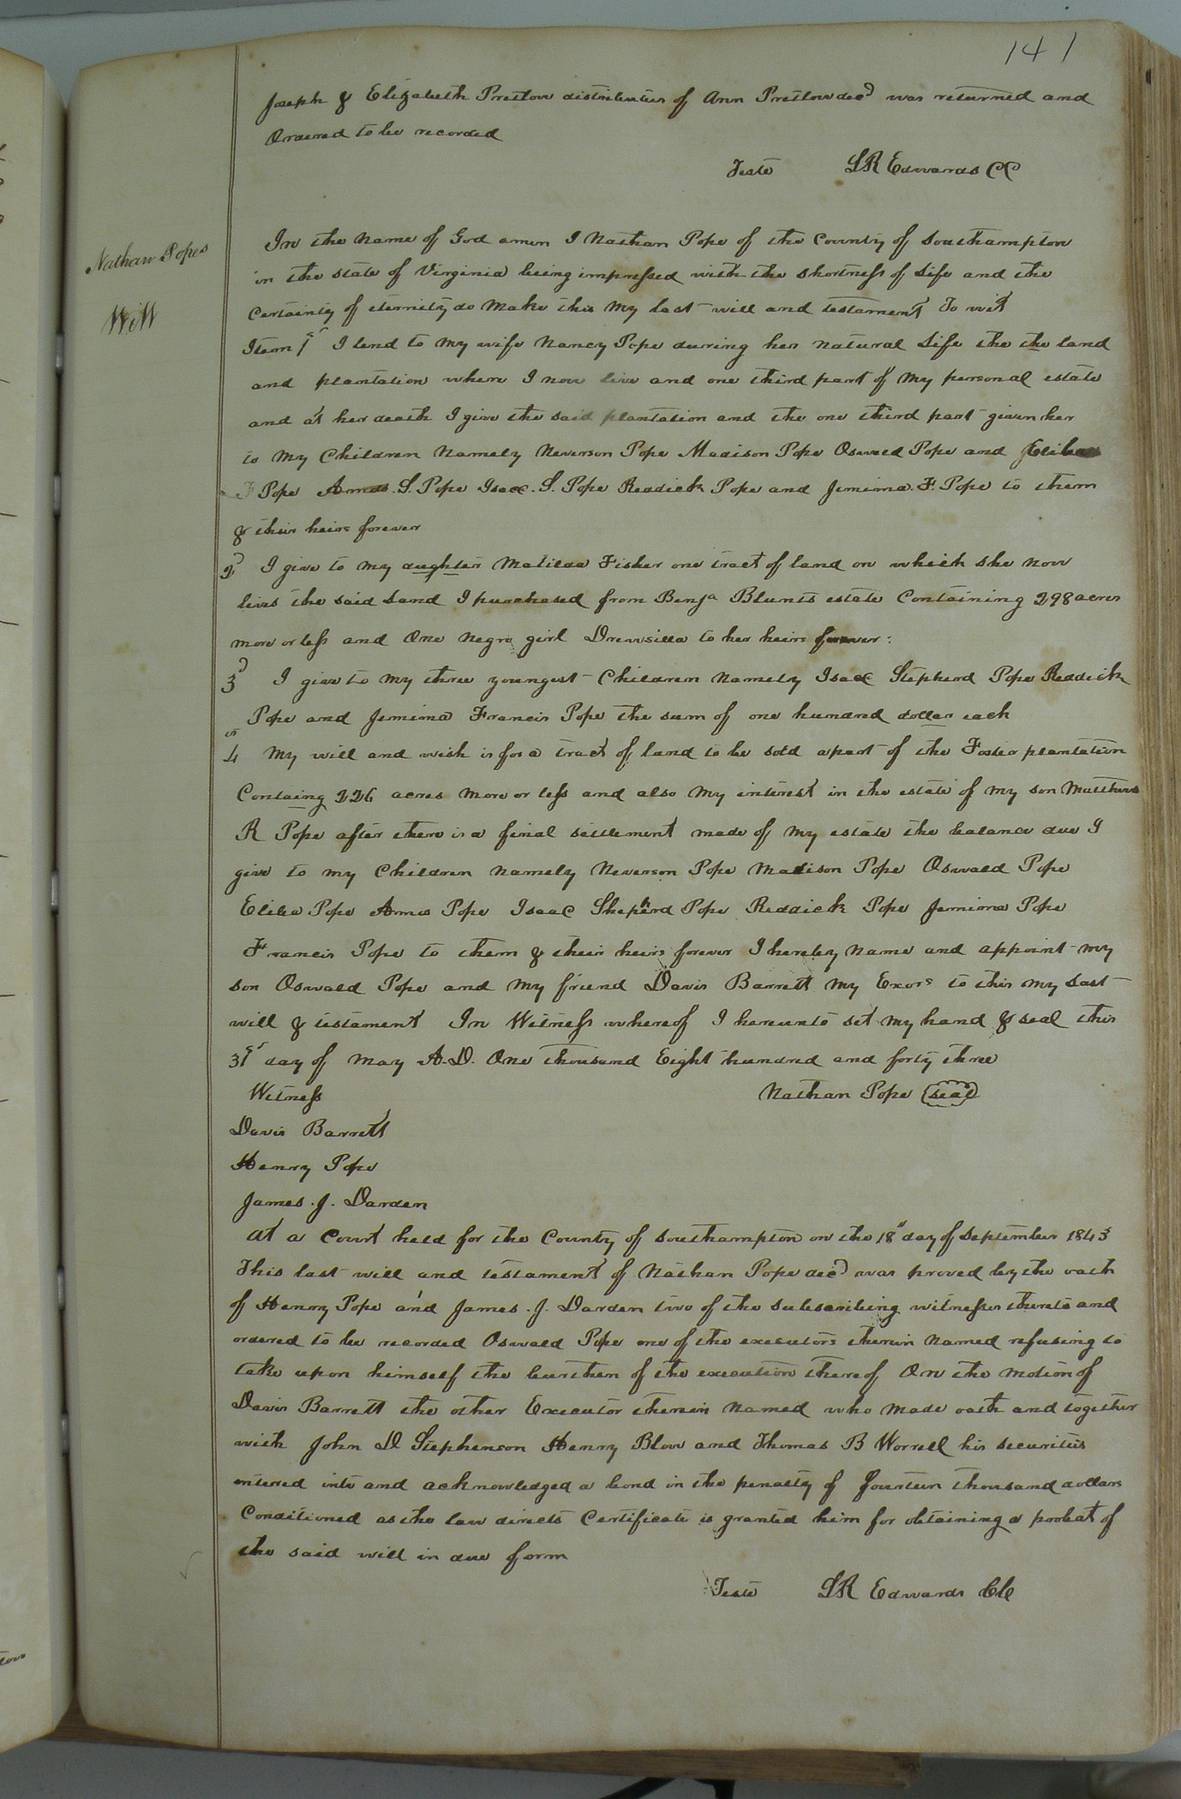 141
Joseph & Elizabeth Pretlow distributees of Ann Pretlow decd was returned and
Ordered to be recorded
Teste LR Edwards CC
Nathan Popes
Will
In the name of God amen I Nathan Pope of the County of Southampton
in the state of Virginia being impressed with the shortness of life and the
certainty of eternity do make this my last will and testament To wit
Item 1st I lend to my wife Nancy Pope during her natural life the the land
and plantation where I now live and one third part of my personal estate
and at her death I give the said plantation and the one third part given her
to my Children namely Neverson Pope Madison Pope Oswald Pope and
Pope Amos. S. Pope Isaac. S. Pope Readick Pope and Jemima. F. Pope to them
& their heirs forever
2d I give to my aughter Matilda Fisher one tract of land on which she now
lives the said land I purchased from Benja Blunts estate Containing 298 acres
more or less and One negro girl Drewsilla to her heirs forever:
3d I give to my three youngest Children namely Isaac Stepherd Pope Reddick
Pope and Jemima Francis Pope the sum of one hundred dollar each
4 My will and wish is for a tract of land to be sold apart of the Foster plantation
Containg 226 acres more or less and also my interest in the estate of my son Matthew
R Pope after there is a final settlement made of my estate the balance due I
give to my Children namely Neverson Pope Madison Pope Oswald Pope
Eliba Pope Amos Pope Isaac Shepherd Pope Reddick Pope Jemima Pope
Francis Pope to them & their heirs forever I hereby name and appoint my
son Oswald Pope and my friend Davis Barrett my Exors to this my last
will & testament In Witness whereof I hereunto set my hand & seal this
31st day of May A.D. One thousand Eight hundred and forty three
Witness Nathan Pope (seal)
Davis Barrett
Henry Pope
James. J. Darden
At a Court held for the County of Southampton on the 18th day of September 1843
This last will and testament of Nathan Pope decd was proved by the oath
of Henry Pope and James. J. Darden two of the subscribing witnesses thereto and
ordered to be recorded Oswald Pope one of the executors therein named refusing to
take upon himself the burthen of the execution thereof On the motion of
Davis Barrett the other Executor therein named who made oath and together
with John D Stephenson Henry Blow and Thomas B Worrell his securities
entered into and acknowledged a bond in the penalty of fourteen thousand dollars
Conditioned as the law directs Certificate is granted him for obtaining a probat of
the said will in due form
Teste LR Edwards CC